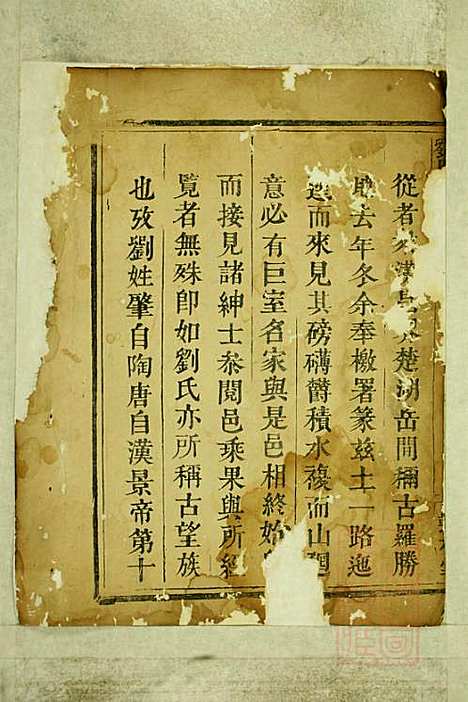 從者
漢
楚湖岳間稱古羅勝
去年冬余奉檄署篆茲土一路迤
邐而來見其磅礡鬱積水複而山迴
意必有巨室名家與是邑相終始
而接見諸紳士叅閱邑乘果與所經
覽者無殊即如劉氏亦所稱古望族
也攷劉姓肇自陶唐自漢景帝第十